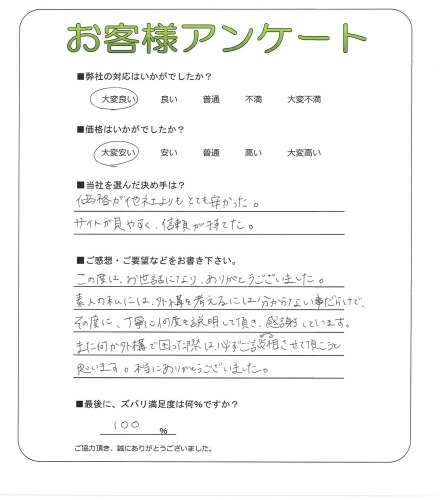 お客様アンケート
■弊社の対応はいかがでしたか？
大変良い 良い 普通 不満 大変不満
■価格はいかがでしたか？
大変安い 安い 普通 高い 大変高い
■当社を選んだ決め手は？
価格が他社よりもとても安かった。
サイトが見やすく、信頼が持てた。
■ご感想・ご要望などをお書き下さい。
この度は、お世話になり、ありがとうございました。
素人の私には、外構を考えるには分からない事だらけで、
その度に、丁寧に何度も説明して頂き、感謝しています。
また何か外構で困った際は、必ずご相談させて頂こうと
思います。本当にありがとうございました。
■最後に、ズバリ満足度は何％ですか？
100 ％
ご協力頂き、誠にありがとうございました。